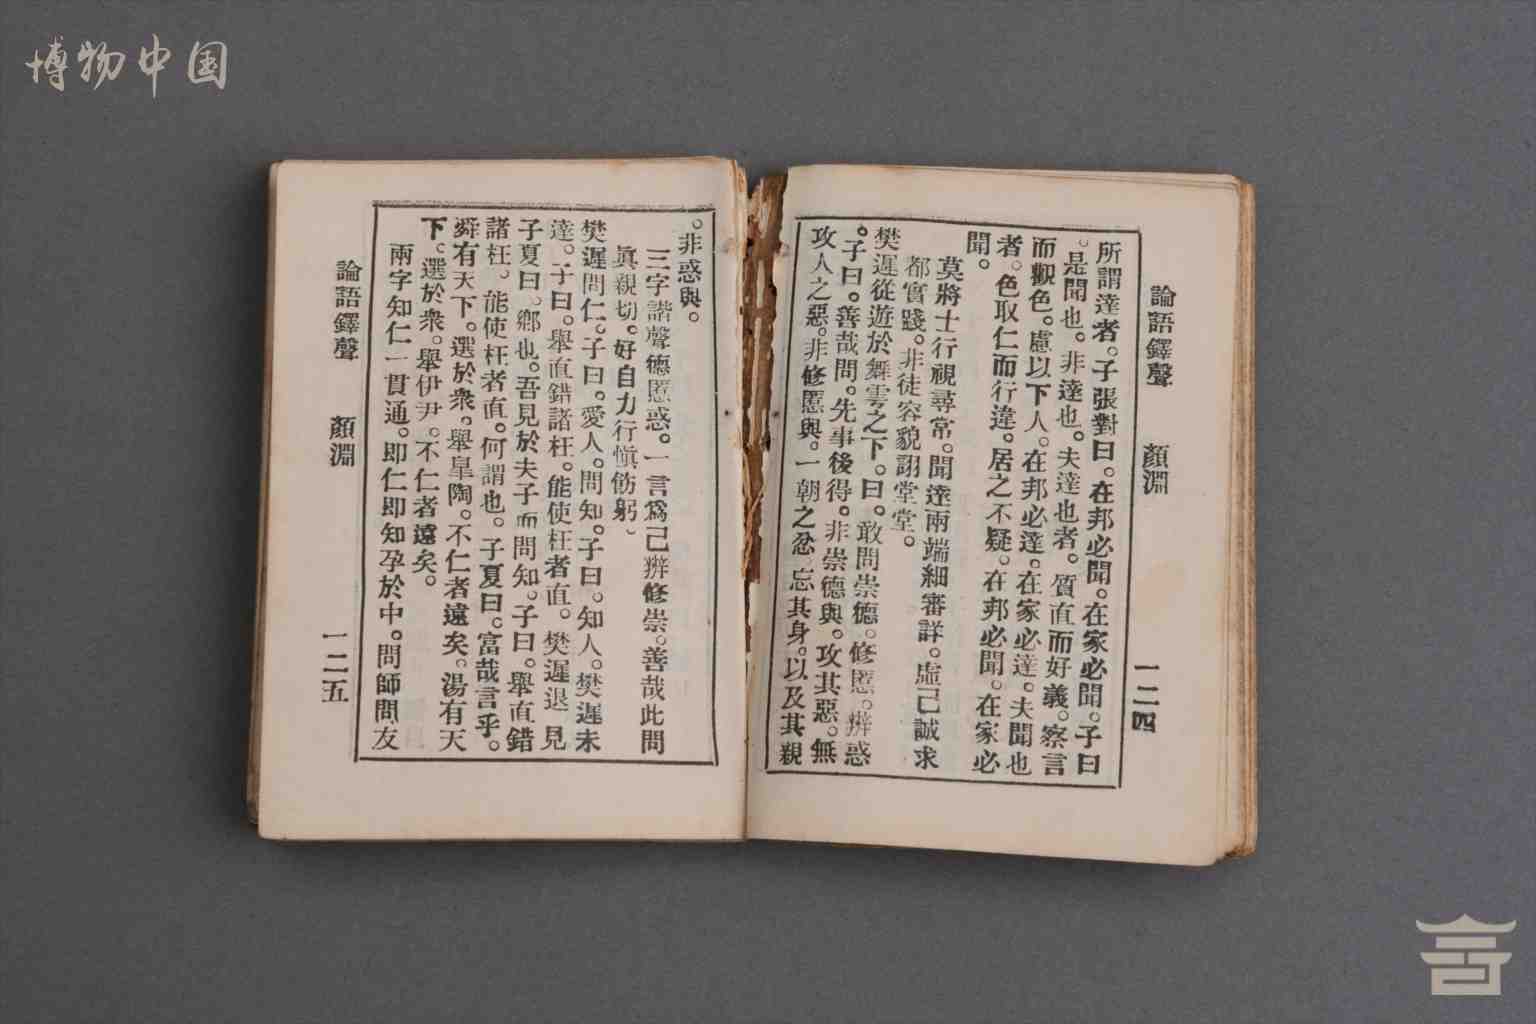 博物中国
論語鐸聲
顏淵
一二四
所謂達者。子張對曰。在邦必聞。在家必聞。子曰
。是聞也。非達也。夫達也者。質直而好義。察言
而觀色。慮以下人。在邦必達。在家必達。夫聞也
者。色取仁而行違。居之不疑。在邦必聞。在家必
聞。
莫將士行視尋常。聞達兩端細審詳。虛己誠求
都實踐。非徒容貌詡堂堂。
樊遲從遊於舞雩之下。曰。敢問崇德。修慝。辨惑
。子曰。善哉問。先事後得。非崇德與。攻其惡。無
攻人之惡。非修慝與。一朝之忿。忘其身。以及其親
。非惑與。
三字諧聲德慝惑。一言爲己辨修崇。善哉此問
眞親切。好自力行愼飭躬。
樊遲問仁。子曰。愛人。問知。子曰。知人。樊遲未
達。子曰。舉直錯諸枉。能使枉者直。樊遲退見
子夏曰。鄉也。吾見於夫子而問知。子曰。舉直錯
諸枉。能使枉者直。何謂也。子夏曰。富哉言乎。
舜有天下。選於衆。舉皐陶。不仁者遠矣。湯有天
下。選於衆。舉伊尹。不仁者遠矣。
兩字知仁一貫通。即仁即知孕於中。問師問友
論語鐸聲
顏淵
一二五